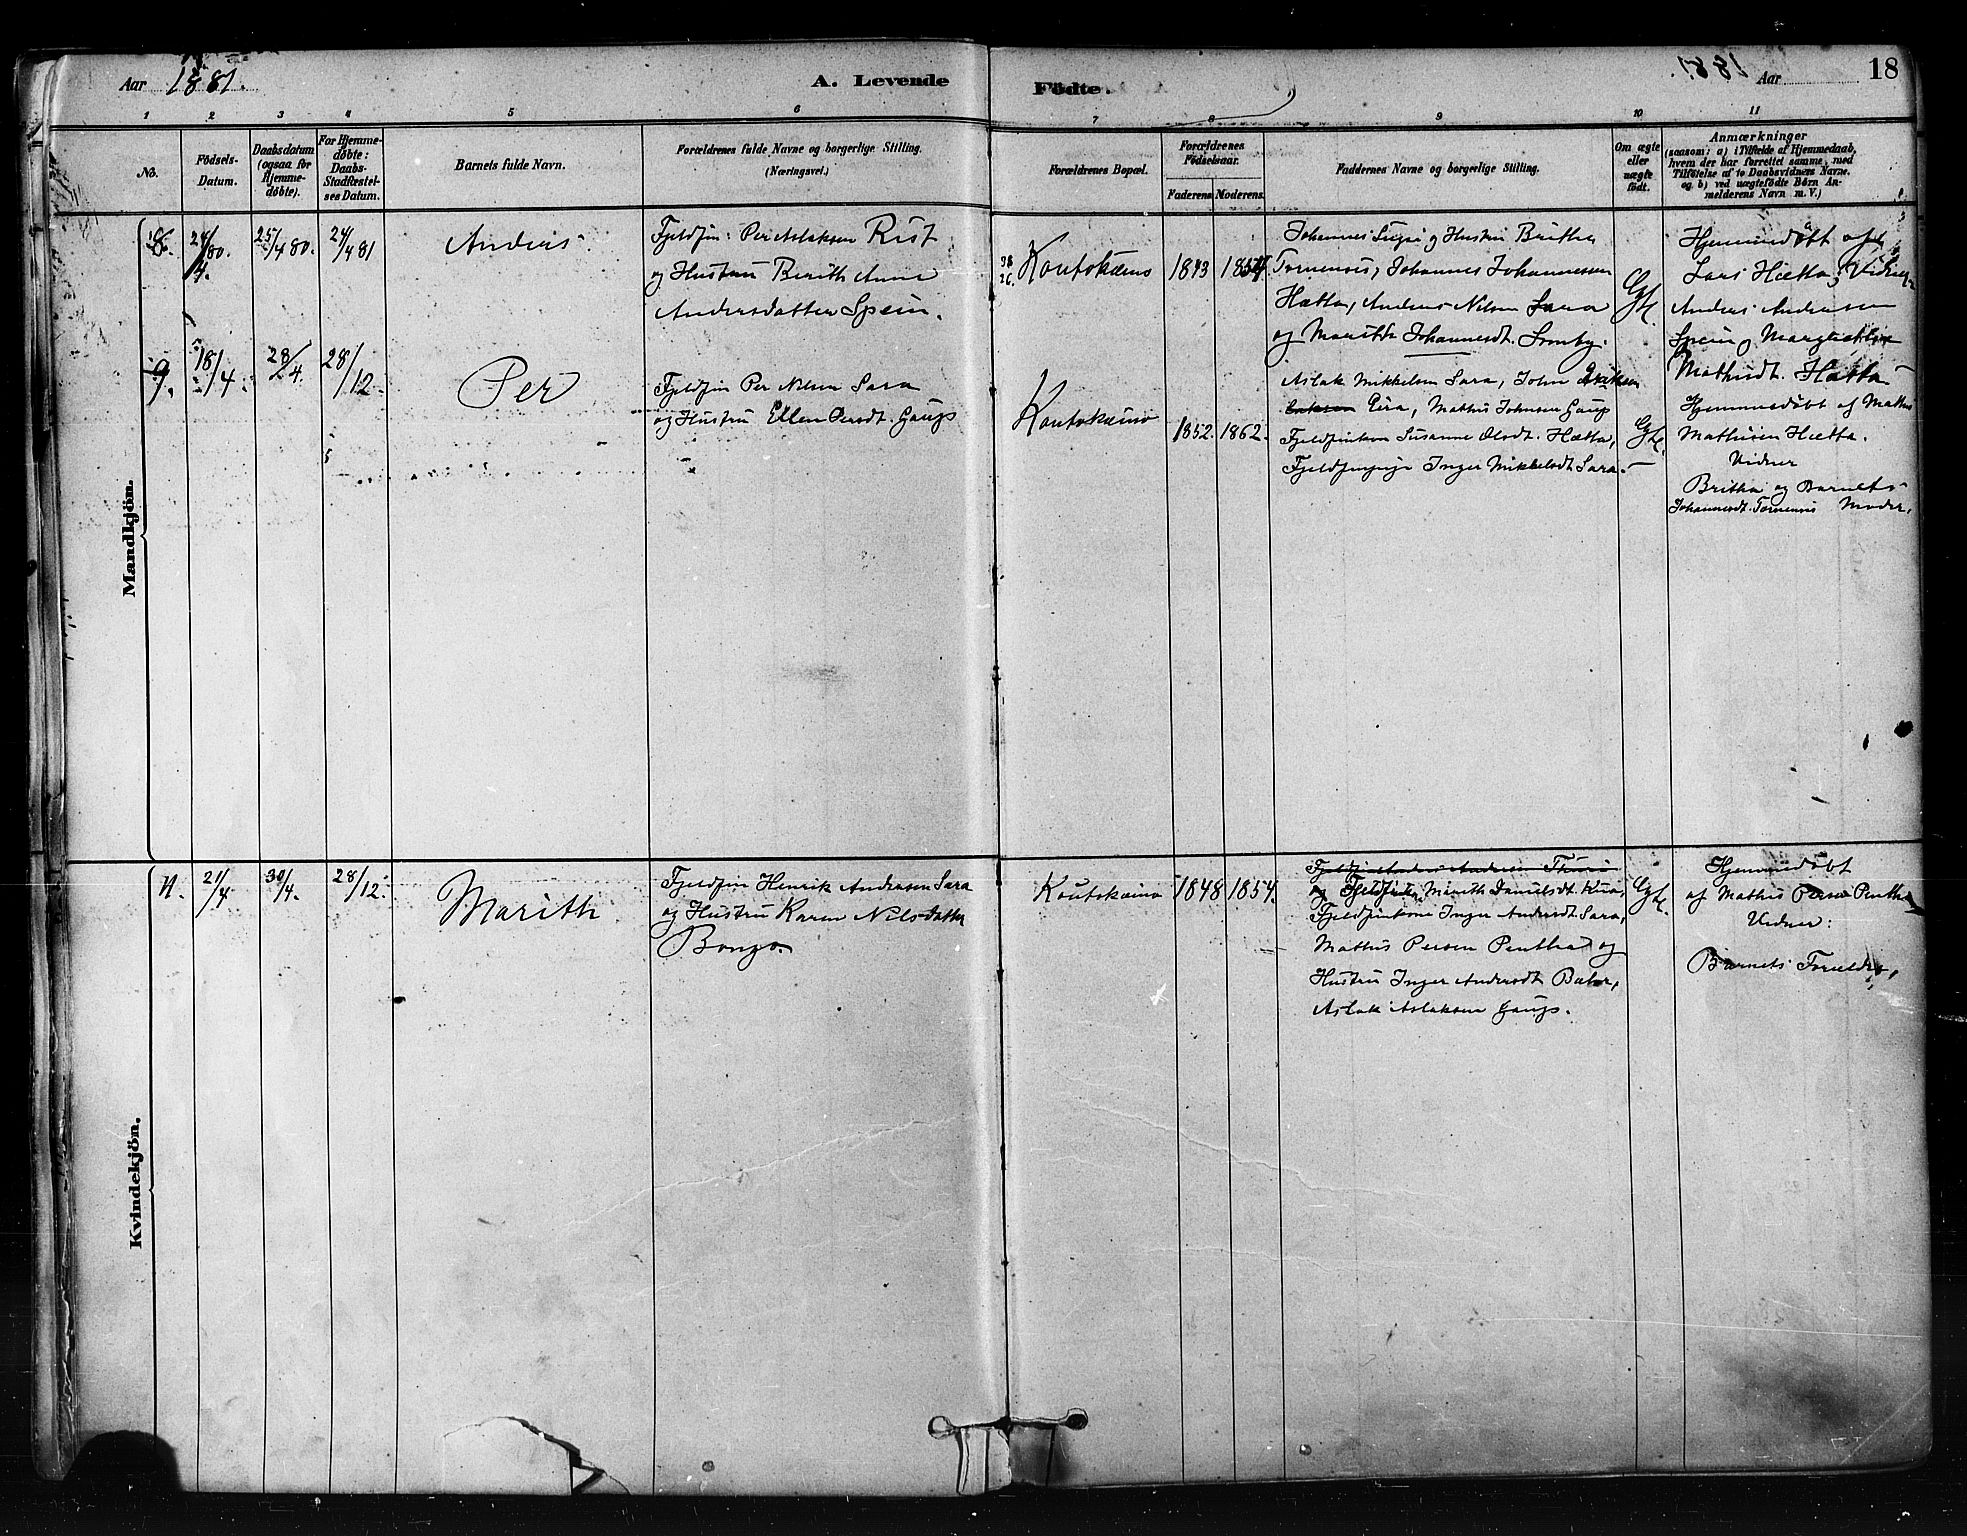 Aar 1881.
A. Levende
Födte.
1881. Aar
18
1 2 3 4 5 6 7 8 9 10 11
No.
Födsels-
Datum.
Daabsdatum
(ogsaa for
Hjemme-
döbte).
For Hjemme-
döbte:
Daabs-
Stadfæstel-
ses Datum.
Barnets fulde Navn.
Forældrenes fulde Navne og borgerlige Stilling.
(Næringsvei.)
Forældrenes Bopæl.
Forældrenes
Födselsaar.
Faderens. Moderens.
Faddernes Navne og borgerlige Stilling.
Om ægte
eller
uægte
födt.
Anmærkninger
(saasom: a) i Tilfælde af Hjemmedaab,
hvem der har forrettet samme, med
Tilföielse af to Daabsvidners Navne,
og b) ved uægtefödte Börn An-
melderens Navn m. V.)
Mandkjön.
8. 24/4 80. 25/4 80. 24/4 81
Anders
Fjeldfin: Per Aslaksen Rist
og Hustru Berith Anne
Andersdatter Spein.
Koutokæino
1843 1854
Johannes og Hustru Britha
Tornensis, Johannes Johannesen
Hætta, Anders Nilsen Sara
og Marith Johannesdt. Somby.
Hjemmedöbt af
Lars Hætta, Vidner
Anders Andersen
Spein og
Mathisdt. Hætta
9. 18/4 28/4. 28/12
Per
Fjeldfin Per Nilsen Sara
og Hustru Ellen Persdt. Gaup
Koutokæino
1852. 1862.
Aslak Mikkelsen Sara, John
Eira, Mathis Johnsen Gaup
Fjeldfinkone Susanne Olsdt. Hætta,
Fjeldfinpige Inger Mikkelsdt Sara.
Hjemmedöbt af Mathis
Mathisen Hætta.
Vidner
Britha og Barnets
Johannesdt. Tornensis Moder.
Kvindekjön.
21/4 30/4. 28/12.
Marith
Fjeldfin Henrik Andersen Sara
og Hustru Karen Nilsdatter
Bongo.
Koutokæino
1848 1854.
Fjeldfin Anders Andersen
og Marith Danielsdt.
Fjeldfinkone Inger Andersdt Sara,
Mathis Persen Pentha og
Hustru Inger Andersdt Bæhr,
Aslak Aslaksen Gaup.
Hjemmedöbt
af Mathis Persen Pentha
Vidner:
Barnets Forældre.